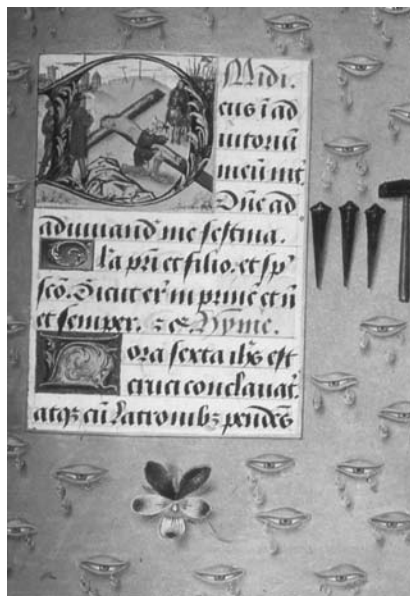 Midi.
Deus ĩ ad
iutoriũ
meũ int.
Dñe ad
adiuuand̃ me festina.
Gl'a pr̃i et filio. et sp̃
sc̃o. Sicut er̃ in princ̃ et ñ
et semper. ⁊c̃. Hyme.
Hora sexta ih̃s est
cruci conclauat᷒.
atqꝫ cũ latronibꝫ pendẽs